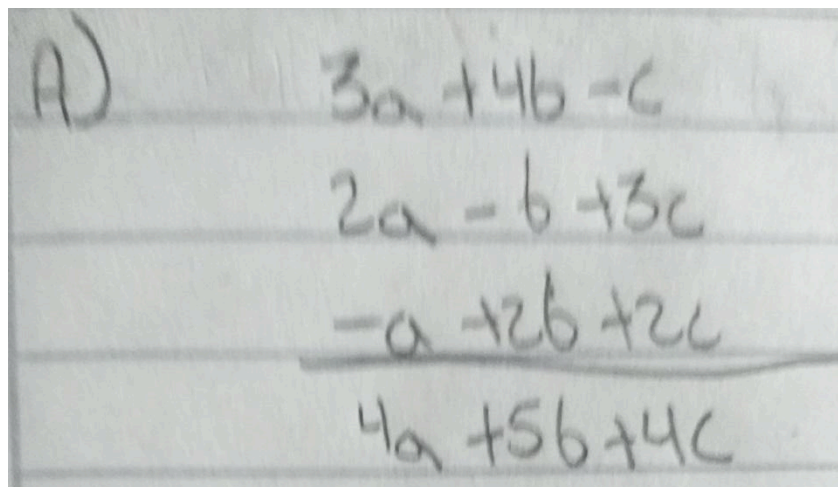 A) 3a +4b -c
2a - b +3c
-a +2b +2c
4a +5b +4c